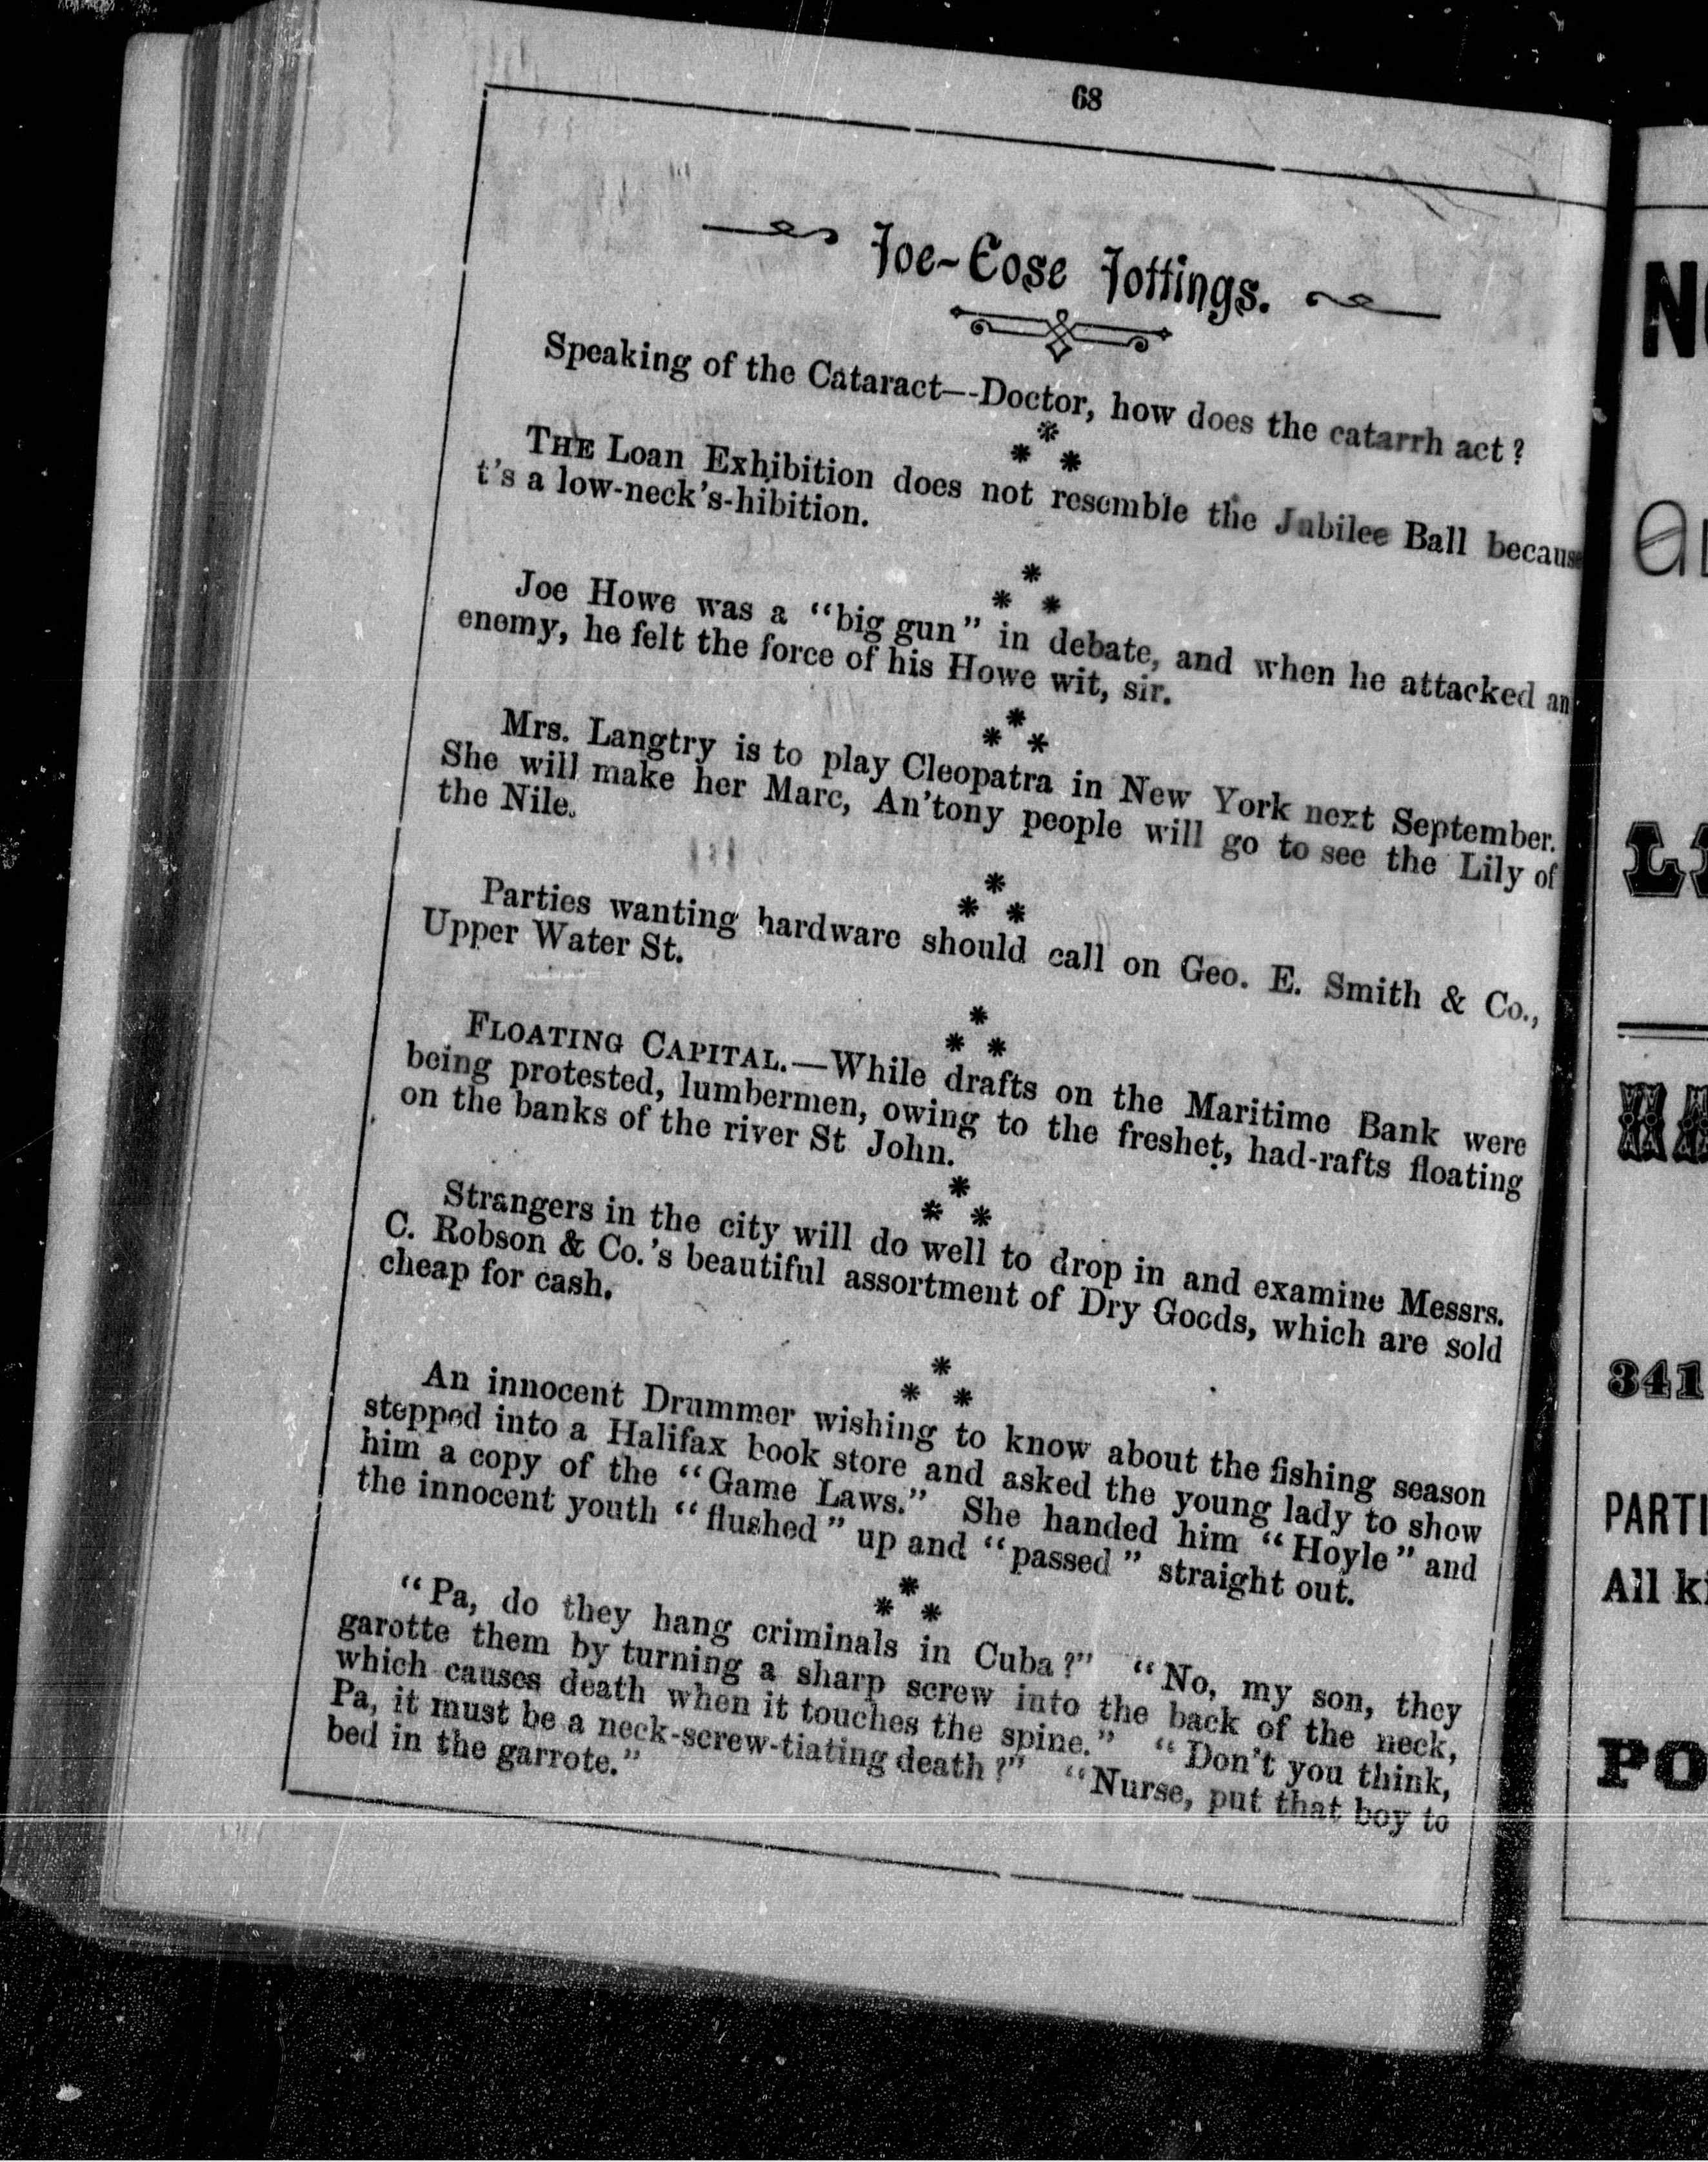 68
Joe-Cose Jottings.
Speaking of the Cataract—-Doctor, how does the catarrh act?
*
* *
THE Loan Exhibition does not resemble the Jubilee Ball because
t's a low-neck's-hibition.
*
* *
Joe Howe was a "big gun" in debate, and when he attacked an
enemy, he felt the force of his Howe wit, sir.
*
* *
Mrs. Langtry is to play Cleopatra in New York next September.
She will make her Marc, An'tony people will go to see the Lily of
the Nile.
*
* *
Parties wanting hardware should call on Geo. E. Smith & Co.,
Upper Water St.
*
* *
FLOATING CAPITAL.—While drafts on the Maritime Bank were
being protested, lumbermen, owing to the freshet, had-rafts floating
on the banks of the river St John.
*
* *
Strangers in the city will do well to drop in and examine Messrs.
C. Robson & Co.'s beautiful assortment of Dry Goods, which are sold
cheap for cash.
*
* *
An innocent Drummer wishing to know about the fishing season
stepped into a Halifax book store and asked the young lady to show
him a copy of the "Game Laws." She handed him "Hoyle" and
the innocent youth "flushed" up and "passed" straight out.
*
* *
"Pa, do they hang criminals in Cuba?" "No, my son, they
garotte them by turning a sharp screw into the back of the neck,
which causes death when it touches the spine." "Don't you think,
Pa, it must be a neck-screw-tiating death?" "Nurse, put that boy to
bed in the garrote."
341
PARTI
All ki
PO